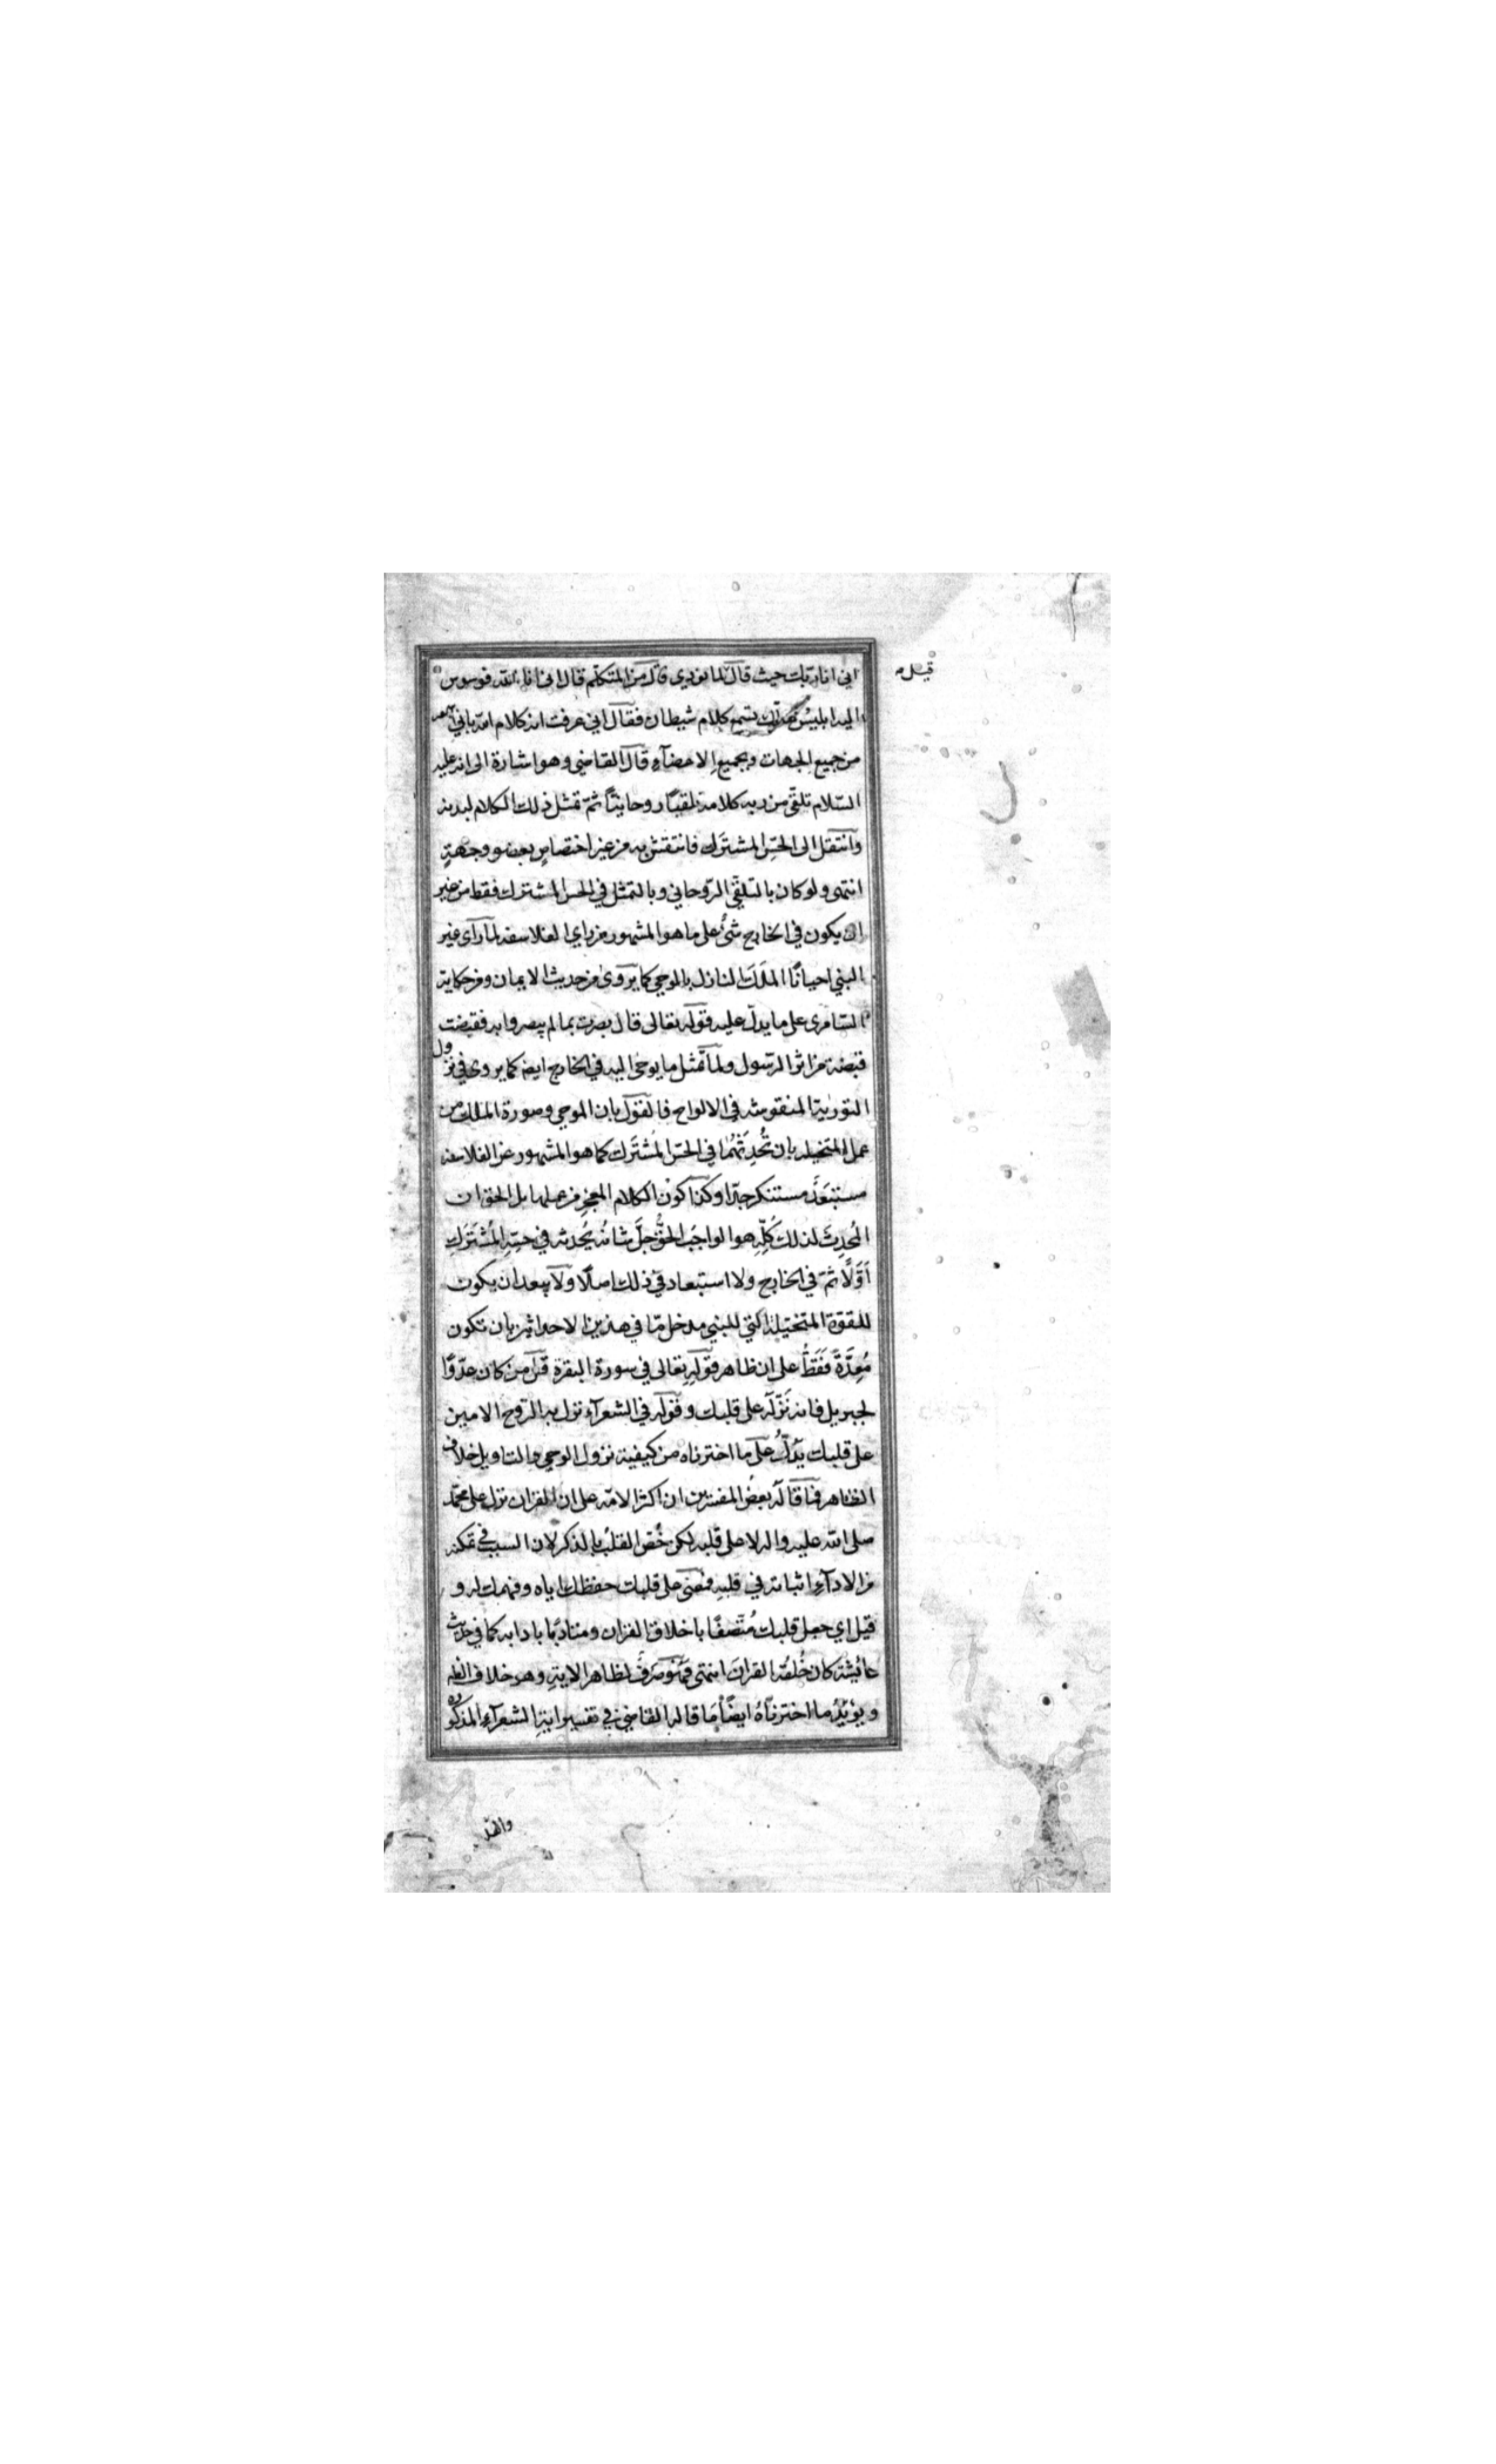 اني انا ربك حيث قال لما نودي قال من المتكلم قال اني انا الله فوسوس
قيل
اليه ابليس لعلك تسمع كلام شيطان فقال اني عرفت انه كلام الله باني اسمعه
من جميع الجهات وبجميع الاعضآء قال القاضي وهو اشارة الى انه عليه
السّلام تلقّى من ربه كلامه تلقيًا روحانيًّا ثمّ تمثل ذلك الكلام لبدنه
وانتقل الى الحسّ المشترَك فانتقش به من غير اختصاصٍ بعضو وجهةٍ
انتهى ولو كان بالتلقّي الرّوحاني وبالتمثل في الحس المشترك فقط من غير
ان يكون في الخارج شئٌ على ما هو المشهور من راي الفلاسفه لما رآى غير
النبي احيانًا الملَكَ النازل بالوحي كما يروى من حديث الايمان ومن حكاية
السّامرى على ما يدلّ عليه قوله تعالى قال بصرت بما لم يبصروا به فقبضت
قبضة من اثر الرّسول ولما تمثل ما يوحى اليه في الخارج ايضا كما يروى في نزول
التورٰية المنقوشه في الالواح فالقول بان الوحي وصورة الملك من
عمل المتخيله بان تُحدِثَهُما في الحسّ المُشترَك كما هو المشهور عن الفلاسفه
مستبعَدٌ مستنكر جدّا وكذا كون الكلام المعجِز من عملها بل الحق ان
المُحدِثَ لذلك كُلِّهِ هو الواجب الحقُّ جلَّ شانُه يُحدثه في حسّهِ المُشتَرَكِ
اَوّلًا ثمّ في الخارج ولا استبعاد في ذلك اصلًا ولا يبعد ان يكون
للقوّة المتخيّلة التي للنبي مدخل مّا في هذين الاحداثين بان تكون
مُعِدَّةً فَقَطْ على ان ظاهر قولهِ تعالى في سورة البقرة قل من كان عدّوًا
لجبريل فانه نَزّلَه على قلبك وقوله في الشعرآء نزل به الرّوح الامين
على قلبك يدُلُّ على ما اخترناه من كيفية نزول الوحي والتاويل خلاف
الظاهر فما قاله بعضُ المفسّرين ان اكثر الامّه على ان القران نزل على محمّد
صلى الله عليه واله لا على قلبه لكن خُصّ القلب بالذكر لان السبب في تمكنه
من الادآءِ اثباته في قلبهِ فمعنى على قلبك حفظك اياه وفهمك له و
قيل اي جعل قلبك مُتّصفًا باخلاق القران ومتادّبًا بادابه كما في حديث
عائشة كان خُلقه القران انتهى فهو صَرفٌ لظاهر الايةِ وهو خلاف الظ
ويؤيّدُ ما اخترناهُ ايضًا ما قاله القاضي في تفسير ايةِ الشعرآءِ المذكوره